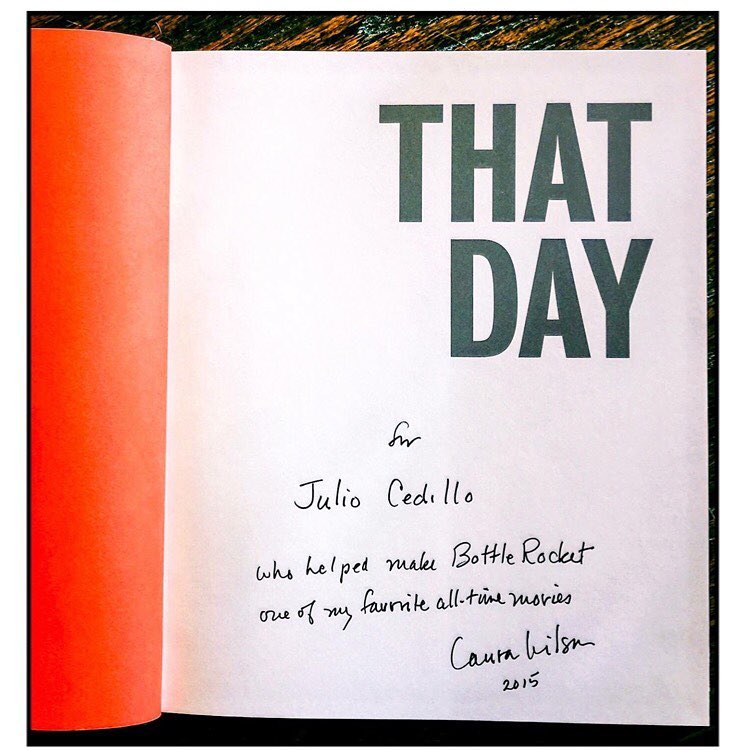 THAT
DAY
for
Julio Cedillo
who helped make Bottle Rocket
one of my favorite all-time movies
Laura Wilson
2015